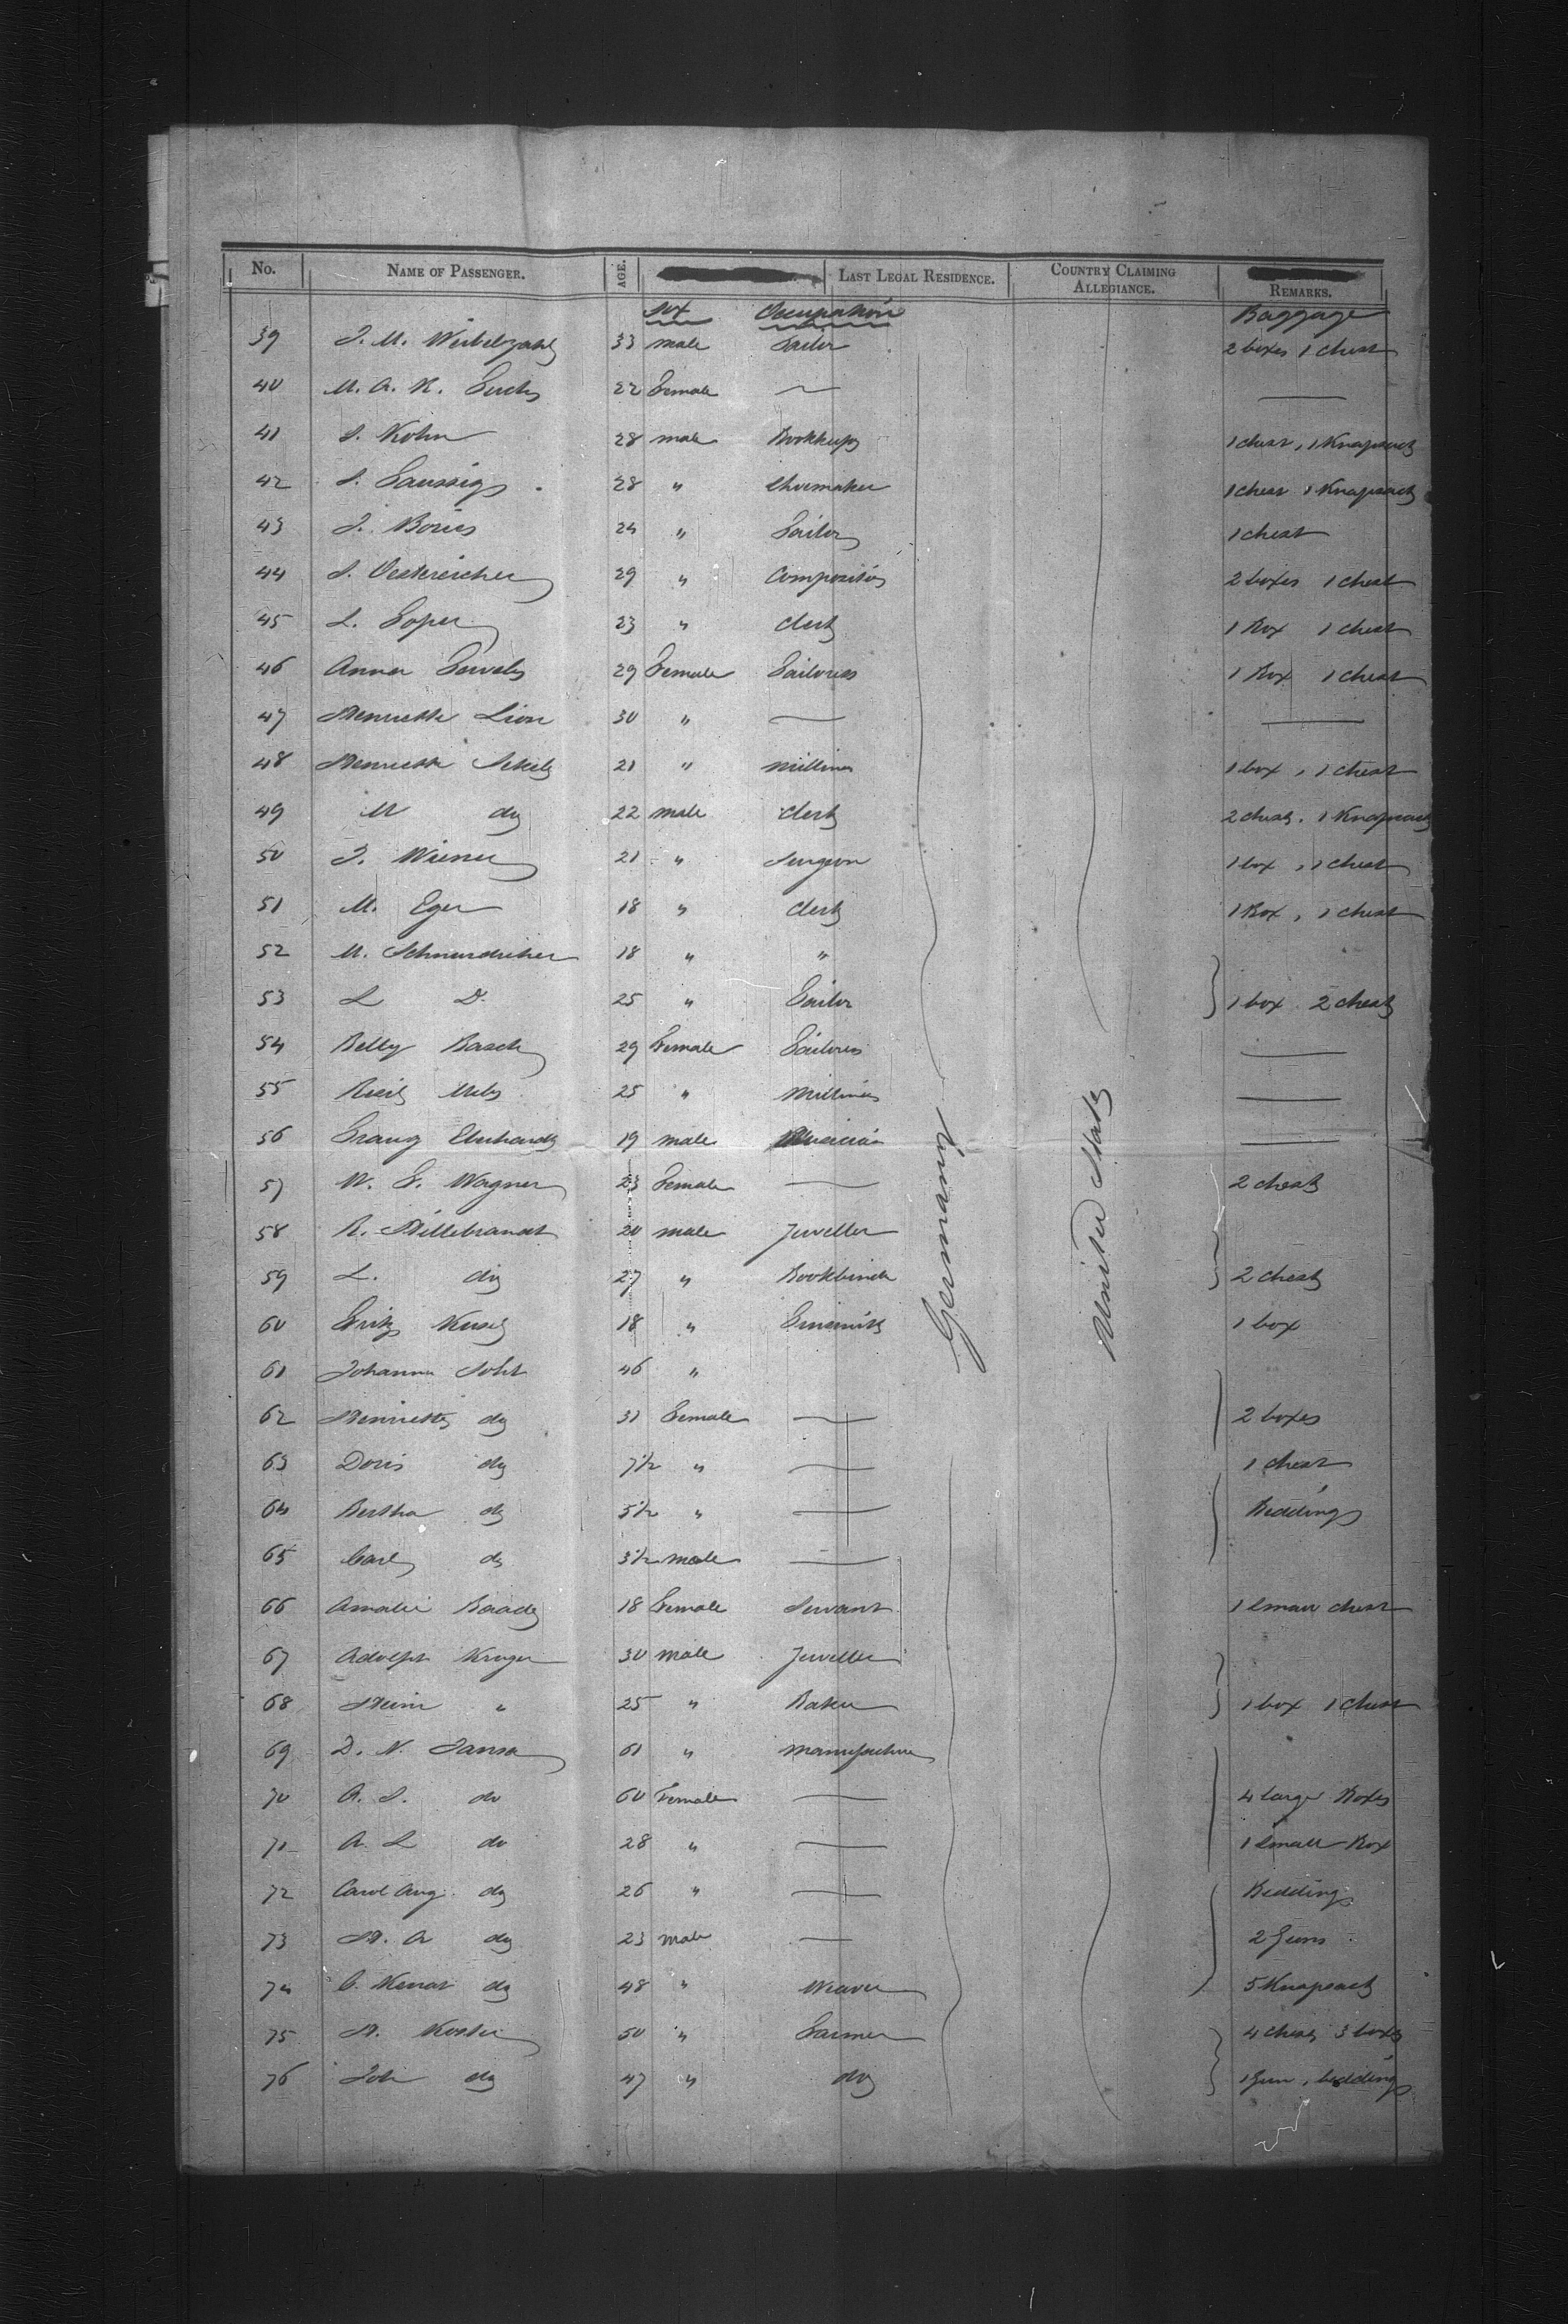 No. NAME OF PASSENGER. AGE. LAST LEGAL RESIDENCE. COUNTRY CLAIMING ALLEGIANCE. REMARKS.
Sex Occupation Baggage
39 33 male Tailor 2 boxes 1 chest
40 M. A. K. 22 Female —
41 S. Kohn 28 male Bookkeeper 1 chest, 1 Knapsack
42 S. Taussig 28 " Shoemaker 1 chest 1 Knapsack
43 J. Bories 24 " Tailor 1 chest
44 S. Oestreicher 29 " Compositor 2 boxes 1 chest
45 L. Toper 23 " Clerk 1 Box 1 chest
46 Anna 29 Female Tailoress 1 Box 1 chest
47 Henriette Lion 30 " —
48 Henriette 21 " Milliner 1 box, 1 chest
49 M do 22 male Clerk 2 chests, 1 Knapsack
50 J. Wiener 21 " Surgeon 1 box, 1 chest
51 M. Eger 18 " Clerk 1 Box, 1 chest
52 M. 18 " "
53 L D. 25 " Tailor 1 box 2 chests
54 Betty Basch 29 Female Tailoress —
55 25 " Milliner —
56 Franz Eberhardt 19 male Musician —
57 W. F. Wagner 23 Female — 2 chests
58 A. Hillebrandt 20 male Jeweller
59 L. do 27 " Bookbinder 2 chests
60 Fritz 18 " Tinsmith 1 box
61 Johann 46 "
62 Henriette do 31 Female — 2 boxes
63 Doris do 7 1/2 " — 1 chest
64 Bertha do 5 1/2 " — Bedding
65 Carl do 3 1/2 male —
66 Amalie Baade 18 Female Servant 1 small chest
67 Adolph Kruger 30 male Jeweller
68 Heinr " 25 " Baker 1 box 1 chest
69 D. N. 61 " Manufacturer
70 A. S. do 60 Female — 4 large Boxes
71 A. L do 28 " — 1 small Box
72 Carol Aug. do 26 " — Bedding
73 H. A do 23 male — 2 Guns
74 C. do 48 " Weaver 5 Knapsack
75 H. Koster 50 " Farmer 4 chests 3 boxes
76 Joh do 47 " do 1 Gun, bedding
Germany
United States